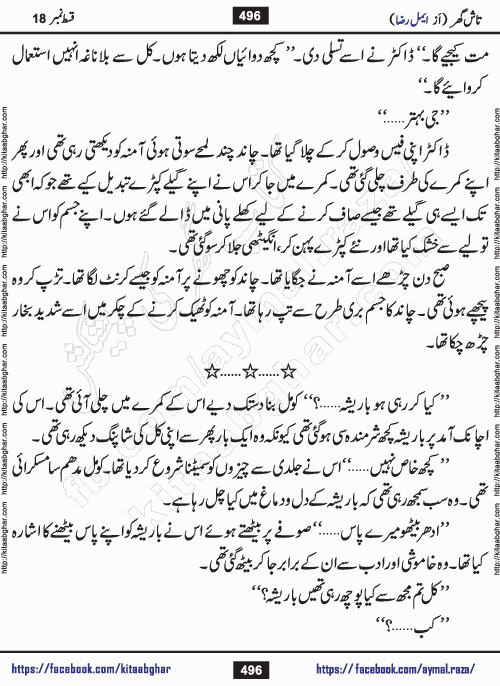 قسط نمبر 18
496
تاش گھر (از ایمل رضا)
مت کیجیے گا۔‘‘ ڈاکٹر نے اسے تسلی دی۔ ’’ کچھ دوائیاں لکھ دیتا ہوں۔ کل سے بلا ناغہ انہیں استعمال
کروایئے گا۔‘‘
’’جی بہتر......‘‘
ڈاکٹر اپنی فیس وصول کر کے چلا گیا تھا۔ چاند چند لمحے سوتی ہوئی آمنہ کو دیکھتی رہی تھی اور پھر
اپنے کمرے کی طرف چلی گئی تھی۔ کمرے میں جا کر اس نے اپنے گیلے کپڑے تبدیل کیے تھے جو کہ ابھی
تک ایسے ہی گیلے تھے جیسے صاف کرنے کے لیے کھلے پانی میں ڈالے گئے ہوں۔ اپنے جسم کو اس نے
تولیے سے خشک کیا تھا اور نئے کپڑے پہن کر، انگیٹھی جلا کر سو گئی تھی۔
صبح دن چڑھے اسے آمنہ نے جگایا تھا۔ چاند کو چھونے پر آمنہ کو جیسے کرنٹ لگا تھا۔ تڑپ کر وہ
پیچھے ہوئی تھی۔ چاند کا جسم بری طرح سے تپ رہا تھا۔ آمنہ کو ٹھیک کرنے کے چکر میں اسے شدید بخار
چڑھ چکا تھا۔
☆.....☆.....☆
’’کیا کر رہی ہو باریشہ......؟‘‘ کومل بنا دستک دیے اس کے کمرے میں چلی آئی تھی۔ اس کی
اچانک آمد پر باریشہ کچھ شرمندہ سی ہو گئی تھی کیونکہ وہ ایک بار پھر سے اپنی کل کی شاپنگ دیکھ رہی تھی۔
’’کچھ خاص نہیں......‘‘ اس نے جلدی سے چیزوں کو سمیٹنا شروع کر دیا تھا۔ کومل مدھم سا مسکرائی
تھی۔ وہ سب سمجھ رہی تھی کہ باریشہ کے دل و دماغ میں کیا چل رہا ہے۔
’’ادھر بیٹھو میرے پاس......‘‘ صوفے پر بیٹھتے ہوئے اس نے باریشہ کو اپنے پاس بیٹھنے کا اشارہ
کیا تھا۔ وہ خاموشی اور ادب سے ان کے برابر جا کر بیٹھ گئی تھی۔
’’کل تم مجھ سے کیا پوچھ رہی تھیں باریشہ؟‘‘
’’کب......؟‘‘
https://facebook.com/kitaabghar
496
https://facebook.com/aymal.raza/
http://kitaabghar.com http://kitaabghar.com http://kitaabghar.com http://kitaabghar.com http://kitaabghar.com http://kitaabghar.com
http://kitaabghar.com http://kitaabghar.com http://kitaabghar.com http://kitaabghar.com http://kitaabghar.com http://kitaabghar.com